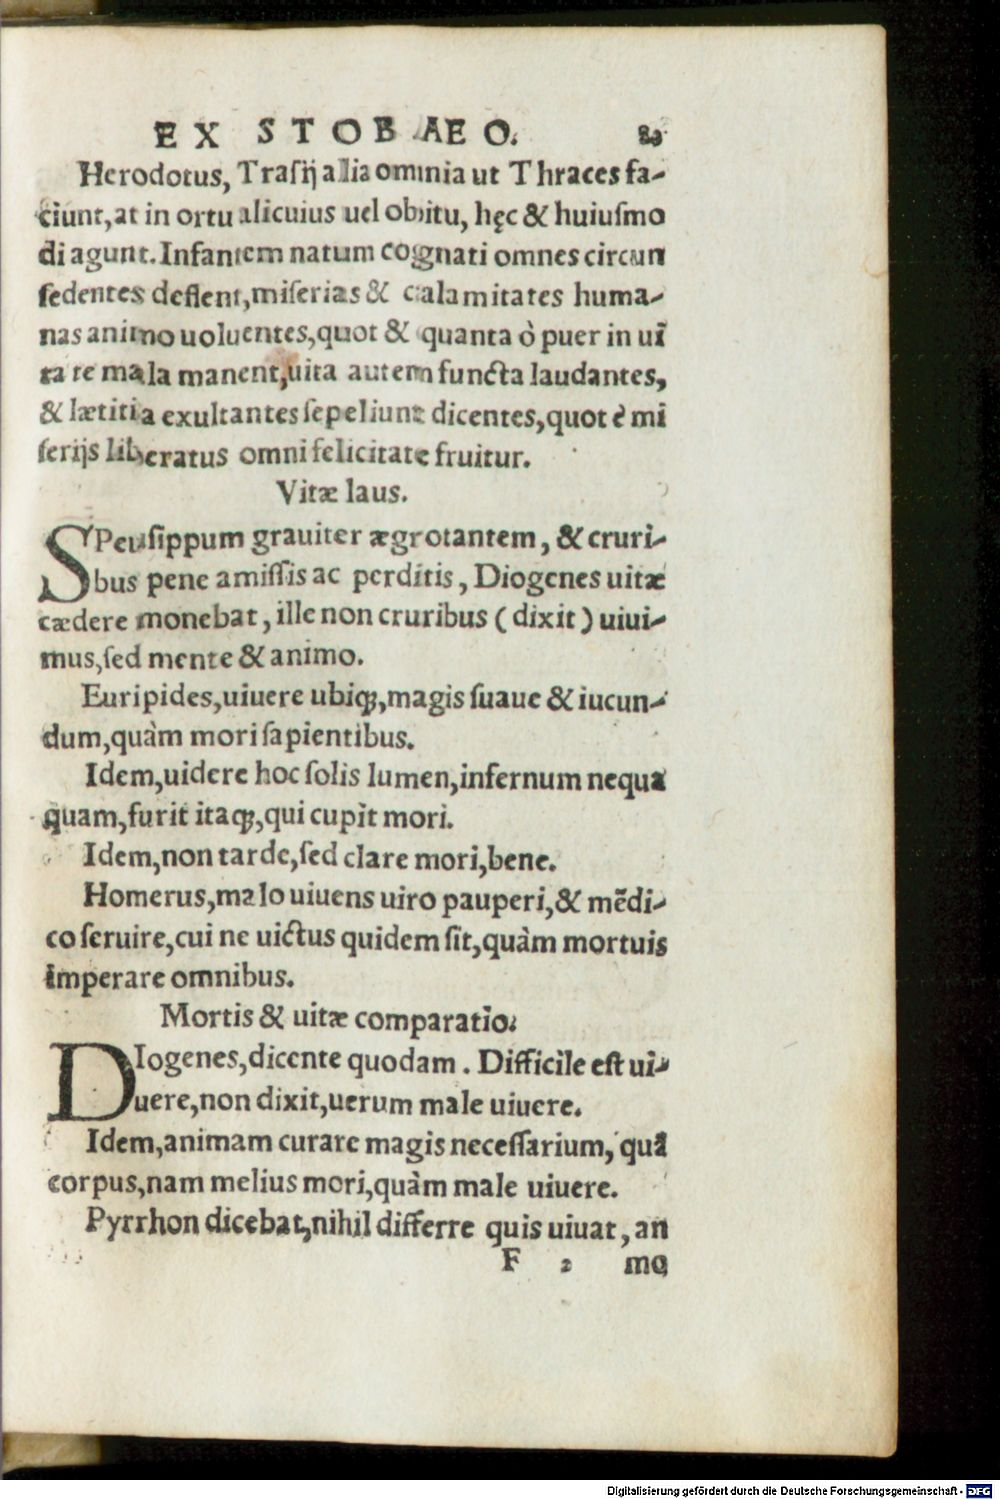 EX STOBAEO.
Herodotus, Trasij alia omnia ut Thraces fa-
ciunt, at in ortu alicuius uel obitu, hęc & huiusmo
di agunt. Infantem natum cognati omnes circun
sedentes deflent, miserias & calamitates huma-
nas animo uoluentes, quot & quanta ò puer in ui
ta te mala manent, uita autem functa laudantes,
& lætitia exultantes sepeliunt dicentes, quot è mi
serijs liberatus omni felicitate fruitur.
Vitæ laus.
SPeusippum grauiter ægrotantem, & cruri-
bus pene amissis ac perditis, Diogenes uitæ
cædere monebat, ille non cruribus (dixit) uiui-
mus, sed mente & animo.
Euripides, uiuere ubiqꝫ, magis suaue & iucun-
dum, quàm mori sapientibus.
Idem, uidere hoc solis lumen, infernum nequa
quam, furit itaqꝫ, qui cupit mori.
Idem, non tarde, sed clare mori, bene.
Homerus, malo uiuens uiro pauperi, & mẽdi-
co seruire, cui ne uictus quidem sit, quàm mortuis
imperare omnibus.
Mortis & uitæ comparatio.
DIogenes, dicente quodam. Difficile est ui-
uere, non dixit, uerum male uiuere.
Idem, animam curare magis necessarium, quã
corpus, nam melius mori, quàm male uiuere.
Pyrrhon dicebat, nihil differre quis uiuat, an
F 2 mo
Digitalisierung gefördert durch die Deutsche Forschungsgemeinschaft - DFG